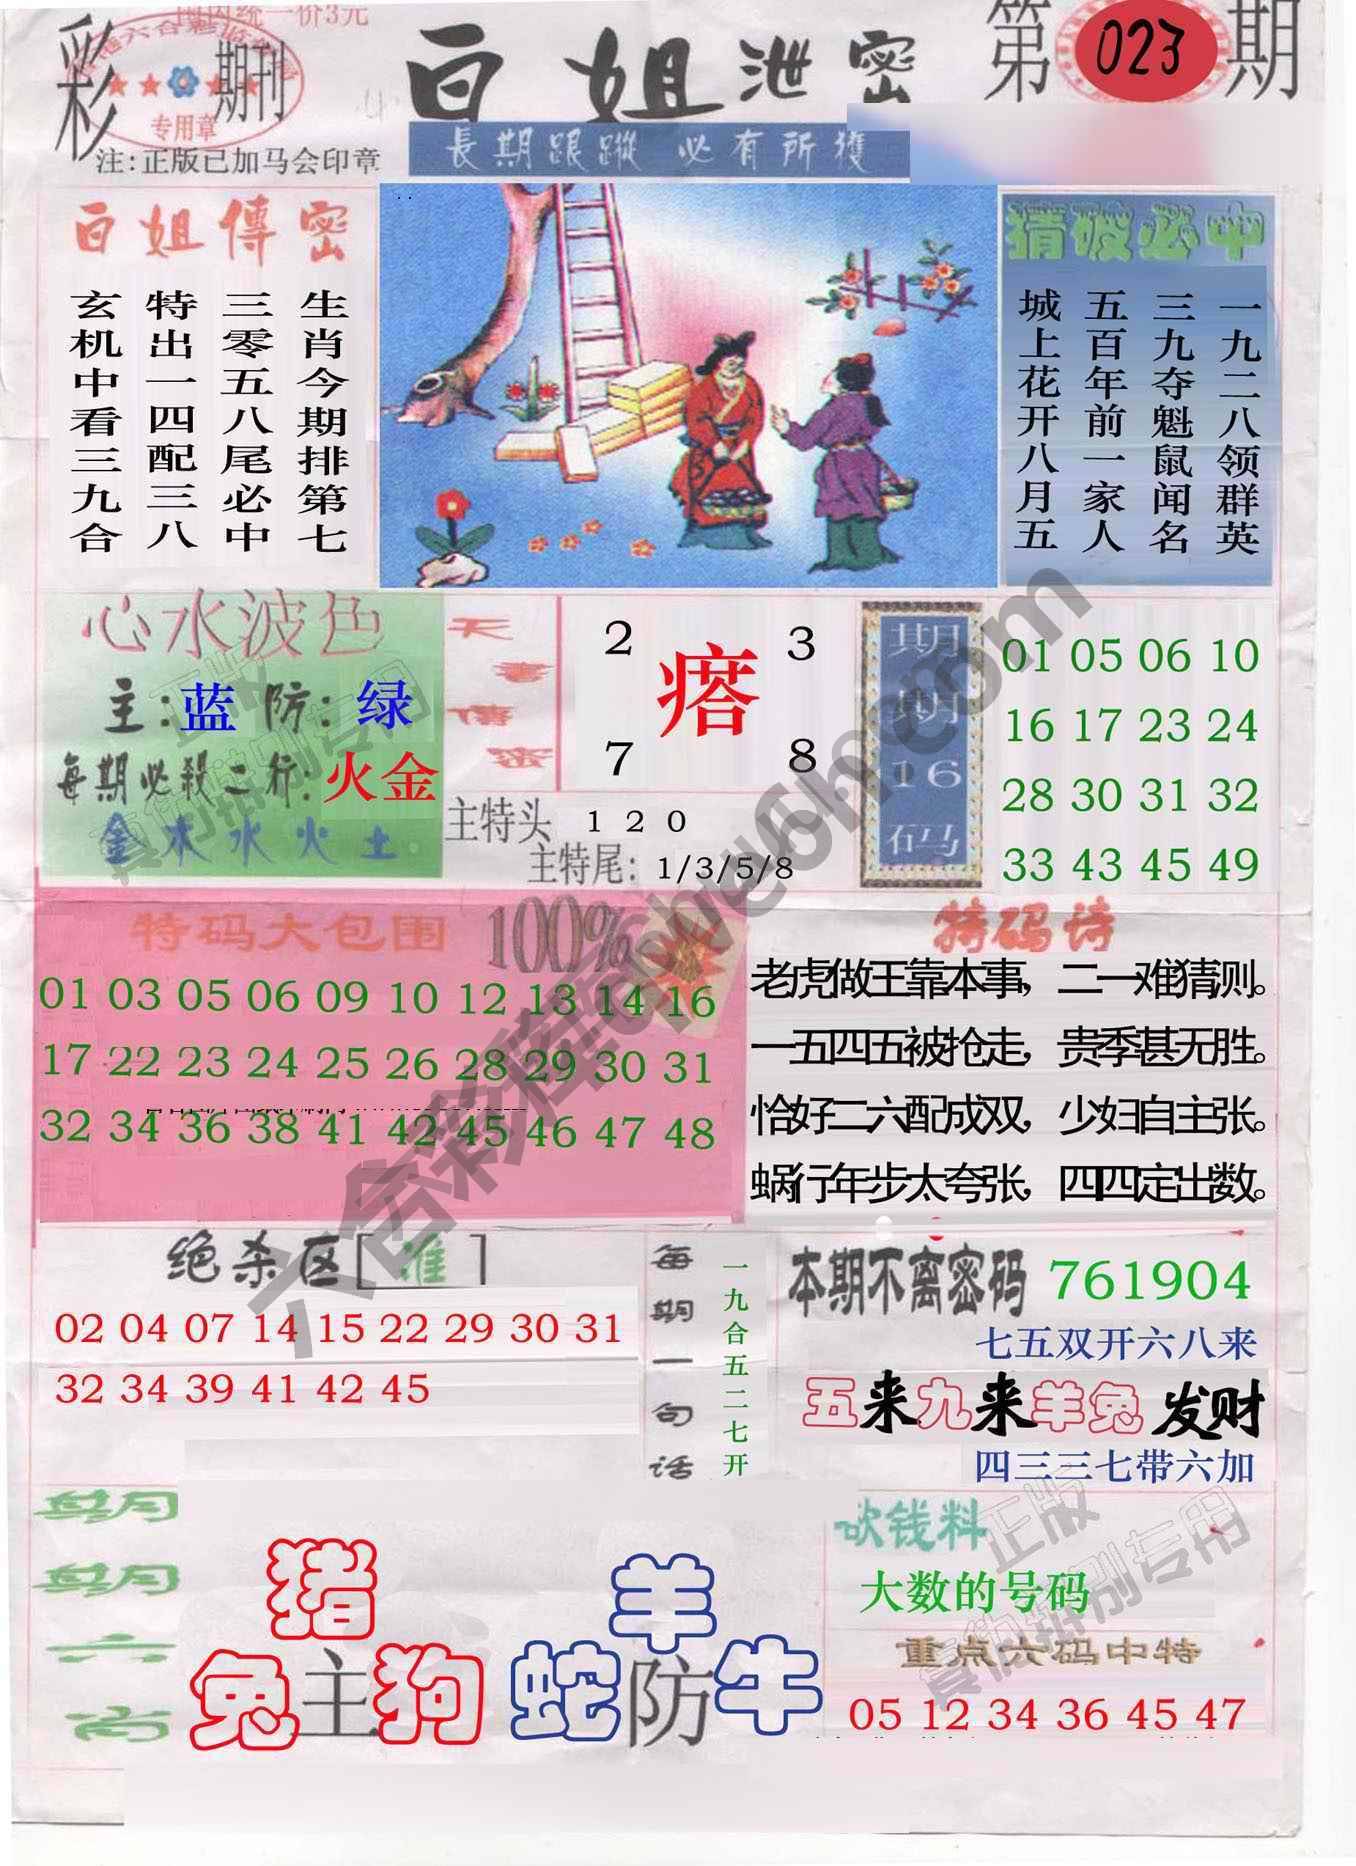 国内统一价3元
彩
期刊
专用章
注:正版已加马会印章
白姐泄密
長期跟蹤 必有所獲
第023期
白姐傳密
生肖今期排第七
三零五八尾必中
特出一四配三八
玄机中看三九合
猜破必中
一九二八领群英
三九夺魁鼠闻名
五百年前一家人
城上花开八月五
心水波色
主:蓝 防:绿
每期必殺二行:火金
金木水火土
2 3
瘩
7 8
主特头 1 2 0
主特尾: 1/3/5/8
期期16码
01 05 06 10
16 17 23 24
28 30 31 32
33 43 45 49
特码大包围 100%
01 03 05 06 09 10 12 13 14 16
17 22 23 24 25 26 28 29 30 31
32 34 36 38 41 42 45 46 47 48
特码诗
老虎做王靠本事,二一难猜测。
一五四五被抢走,贵季甚无胜。
恰好二六配成双,少妇自主张。
蜗行年步太夸张,四四定出数。
绝杀区[准]
02 04 07 14 15 22 29 30 31
32 34 39 41 42 45
每期一句话
一九合五二七开
本期不离密码 761904
七五双开六八来
五来九来羊兔发财
四三三七带六加
期期六肖
猪
兔主狗
羊
蛇防牛
砍钱料
大数的号码
重点六码中特
05 12 34 36 45 47
正版